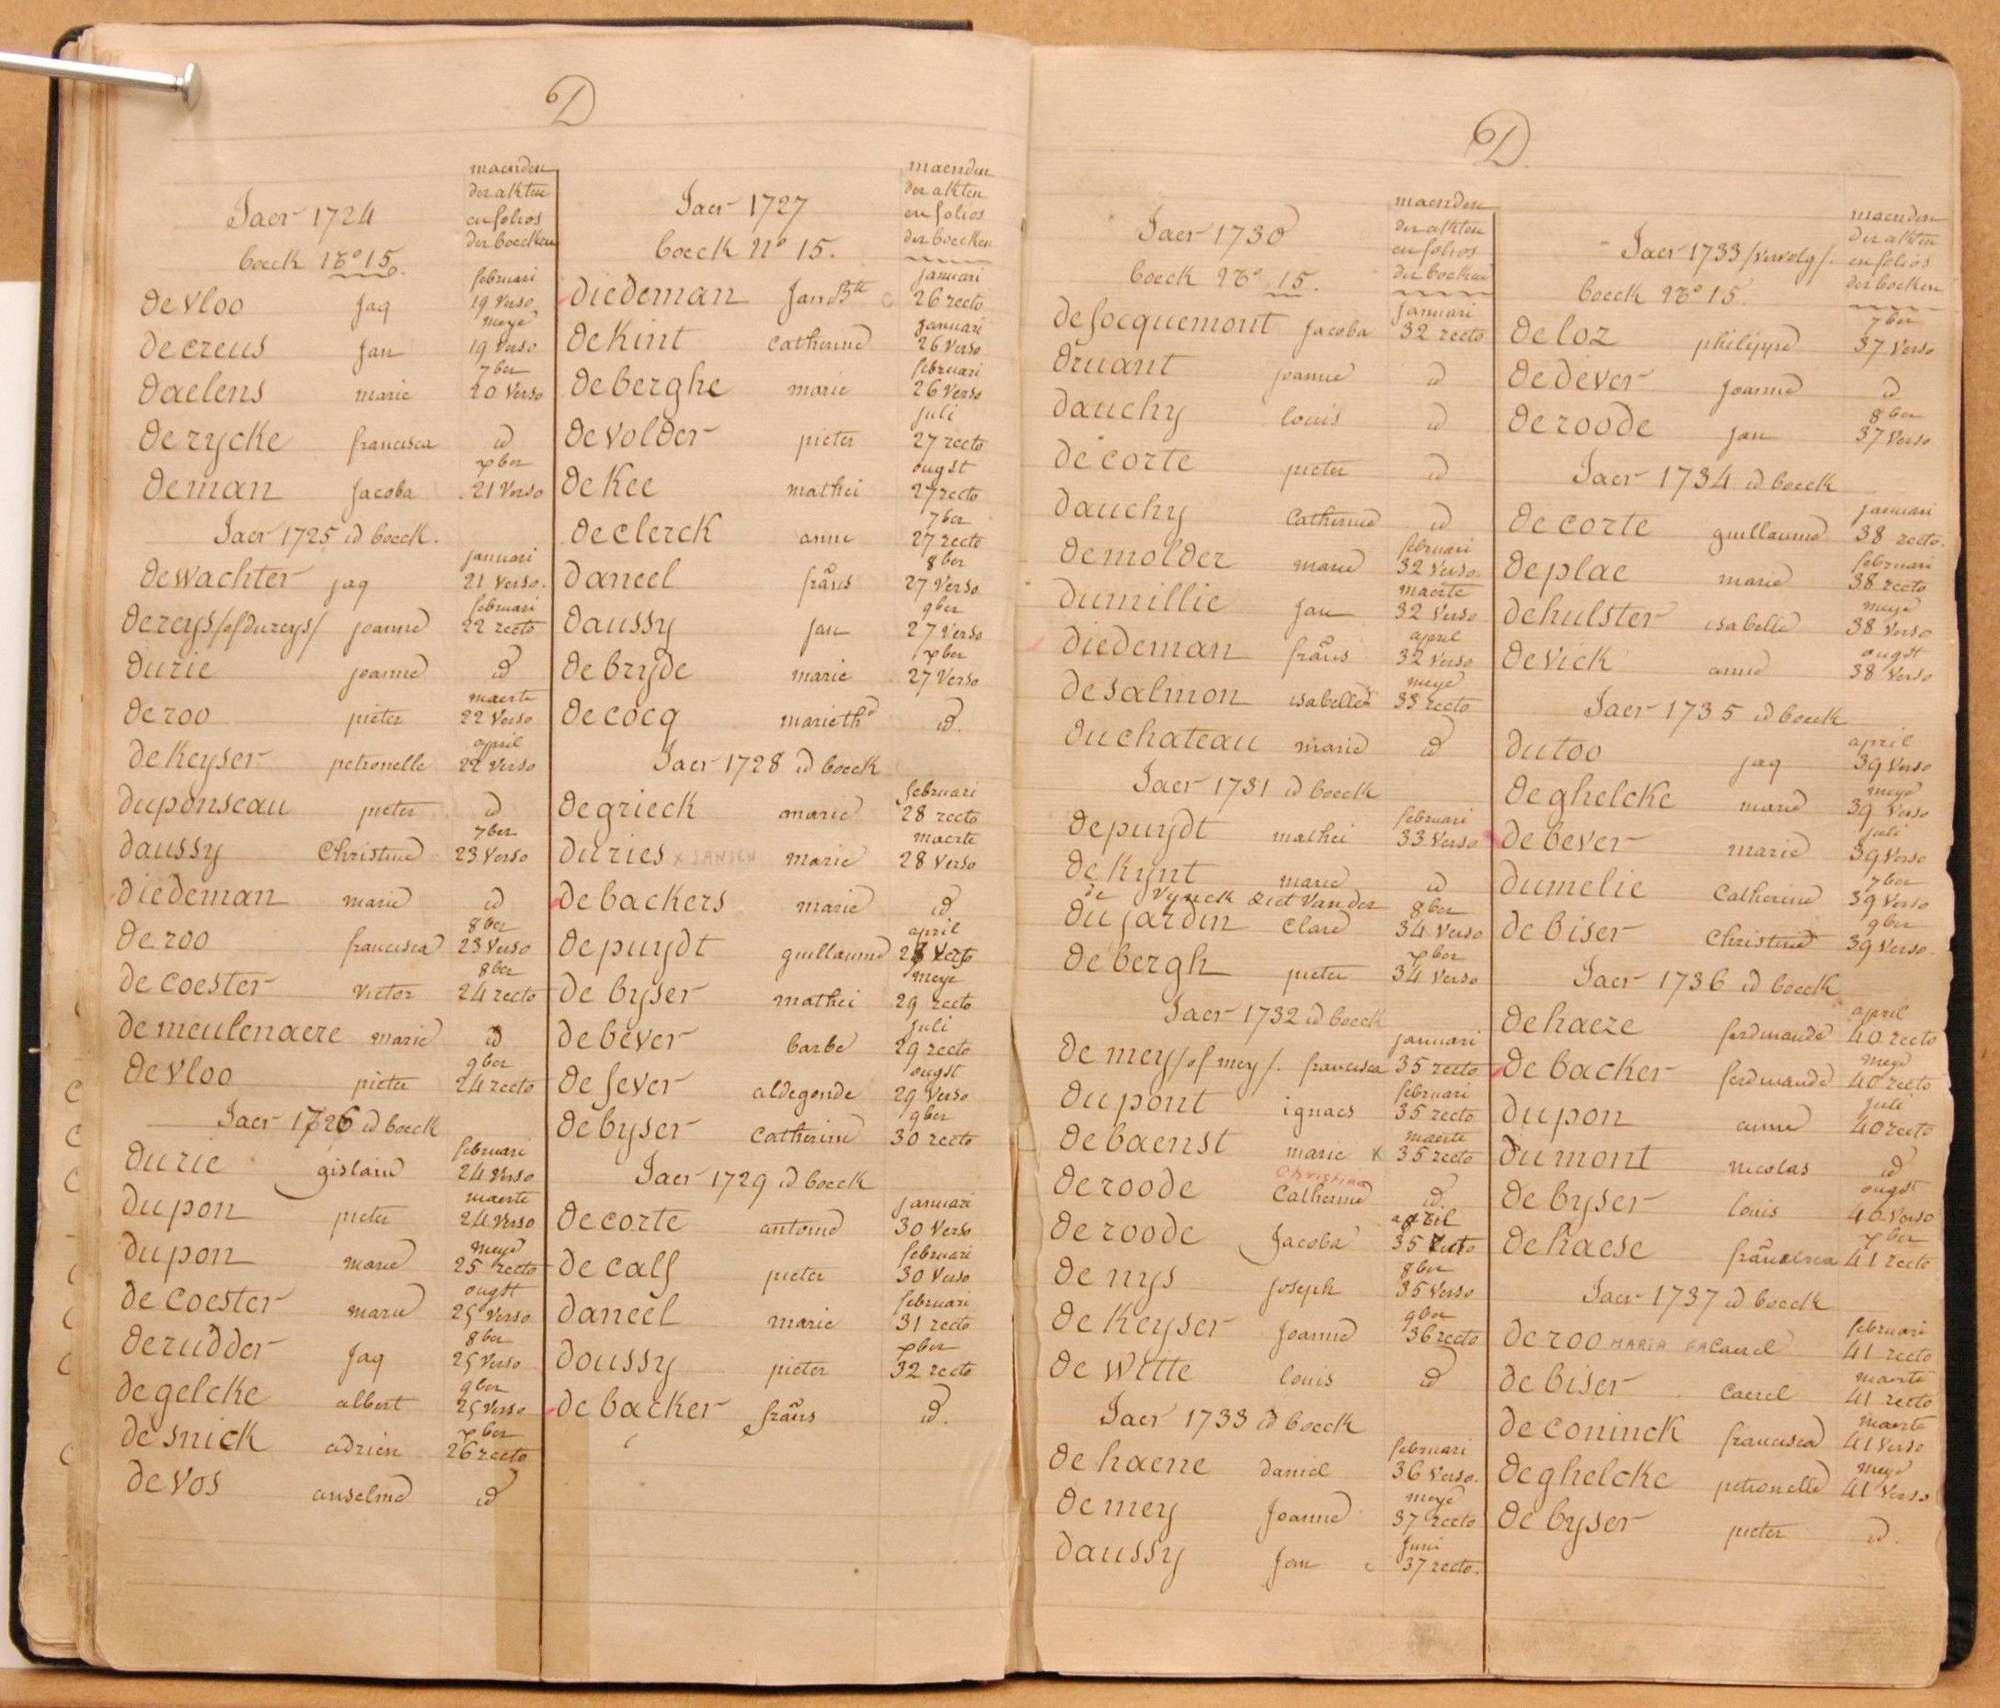 D
maenden
der akten
en folios
der boecken
Jaer 1724
boeck No 15.
februari
de vloo jaq 19 verso
meye
de creus jan 19 verso
7ber
daelens marie 20 verso
de rycke francisca id
xber
de man jacoba 21 verso
Jaer 1725 id boeck.
januari
de wachter jaq 21 verso.
februari
de reys/of du reys/ joanne 22 recto
durie joanne id
maerte
de roo pieter 22 verso
april
de keyser petronelle 22 verso
duponseau pieter id
7ber
daussy Christine 23 verso
diedeman marie id
8ber
de roo francisca 23 verso
8ber
de coester victor 24 recto
de meulenaere marie id
9ber
de vloo pieter 24 recto
Jaer 1726 id boeck
februari
durie gislain 24 verso
maerte
dupon pieter 24 verso
meye
dupon marie 25 recto
ougst
de coester marie 25 verso
8ber
de rudder jaq 25 verso
9ber
de gelcke albert 25 verso
xber
de snick adrien 26 recto
de vos anselme id
maenden
der akten
en folios
der boecken
Jaer 1727
boeck No 15.
januari
diedeman jan Bte 26 recto
januari
de kint catherine 26 verso
februari
de berghe marie 26 verso
juli
de volder pieter 27 recto
ougst
de kee mathei 27 recto
7ber
de clerck anne 27 recto
8ber
daneel frans 27 verso
9ber
daussy jan 27 verso
xber
de bryde marie 27 verso
de cocq marie th id.
Jaer 1728 id boeck
februari
de grieck marie 28 recto
maerte
duries x JANSEN marie 28 verso
de backers marie id
april
de puydt guillaume 28
meye
de byser mathei 29 recto
juli
de bever barbe 29 recto
ougst
de fever aldegonde 29 verso
9ber
de byser catherine 30 recto
Jaer 1729 id boeck
januari
de corte antoine 30 verso
februari
de calf pieter 30 verso
februari
daneel marie 31 recto
xber
doussy pieter 32 recto
de backer frans id.
D.
maenden
der akten
en folios
der boeken
Jaer 1730
boeck No 15.
januari
de focquemont jacoba 32 recto
druant joanne id
dauchy louis id
de corte pieter id
dauchy catherine id
februari
de molder marie 32 verso
maerte
dumillie jan 32 verso
april
diedeman frans 32 verso
meye
de salmon isabelle 33 recto
du chateau marie id
Jaer 1731 id boeck
februari
de puydt mathei 33 verso
de kynt marie id
de Vynck ziet Van der
8ber
du jardin clare 34 verso
xber
de bergh pieter 34 verso
Jaer 1732 id boeck
januari
de mey/of mey/. francisca 35 recto
februari
du pont ignaes 35 recto
maerte
de baenst marie x 35 recto
christina
de roode catherine id.
april
de roode jacoba 35 recto
8ber
de nys joseph 35 verso
9ber
de keyser joanne 36 recto
de witte louis id
Jaer 1733 id boeck
februari
de haene daniel 36 verso.
meye
de mey joanne 37 recto
juni
daussy jan 37 recto.
maenden
der akten
en folios
der boeken
Jaer 1733 /vervolg/.
boeck No 15.
7ber
de loz philippe 37 verso
de dever joanne id
8ber
de roode jan 37 verso
Jaer 1734 id boeck
januari
de corte guillaume 38 recto.
februari
de plae marie 38 recto
meye
de hulster isabelle 38 verso
ougst
de vick anne 38 verso
Jaer 1735 id boeck
april
dutoo jaq 39 verso
meye
de ghelcke marie 39 verso
juli
de bever marie 39 verso
7ber
dumelie catherine 39 verso
9ber
de biser christine 39 verso.
Jaer 1736 id boeck
april
de haeze ferdinande 40 recto
meye
de backer ferdinande 40 recto
juli
dupon anne 40 recto
dumont nicolas id
ougst
de byser louis 40 verso
xber
de haese francisca 41 recto
Jaer 1737 id boeck
februari
de roo MARIA caerel 41 recto
maerte
de biser caerel 41 recto
maerte
de coninck francisca 41 verso
meye
de ghelcke petronelle 41 verso
de byser pieter id.